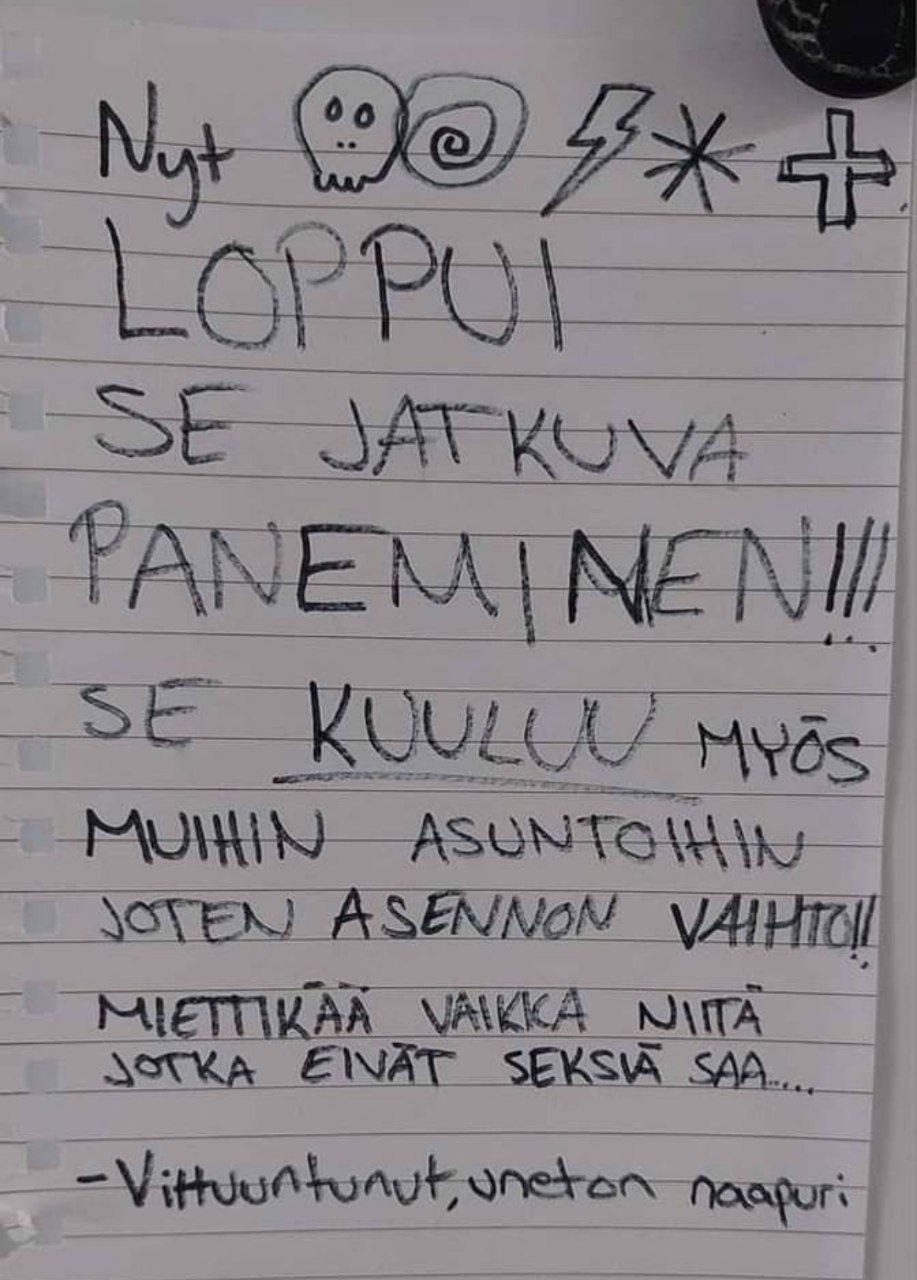 Nyt
LOPPUI
SE JATKUVA
PANEMINEN!!!
SE KUULUU MYÖS
MUIHIN ASUNTOIHIN
JOTEN ASENNON VAIHTO!!
MIETTIKÄÄ VAIKKA NIITÄ
JOTKA EIVÄT SEKSIÄ SAA.....
-Vittuuntunut, uneton naapuri